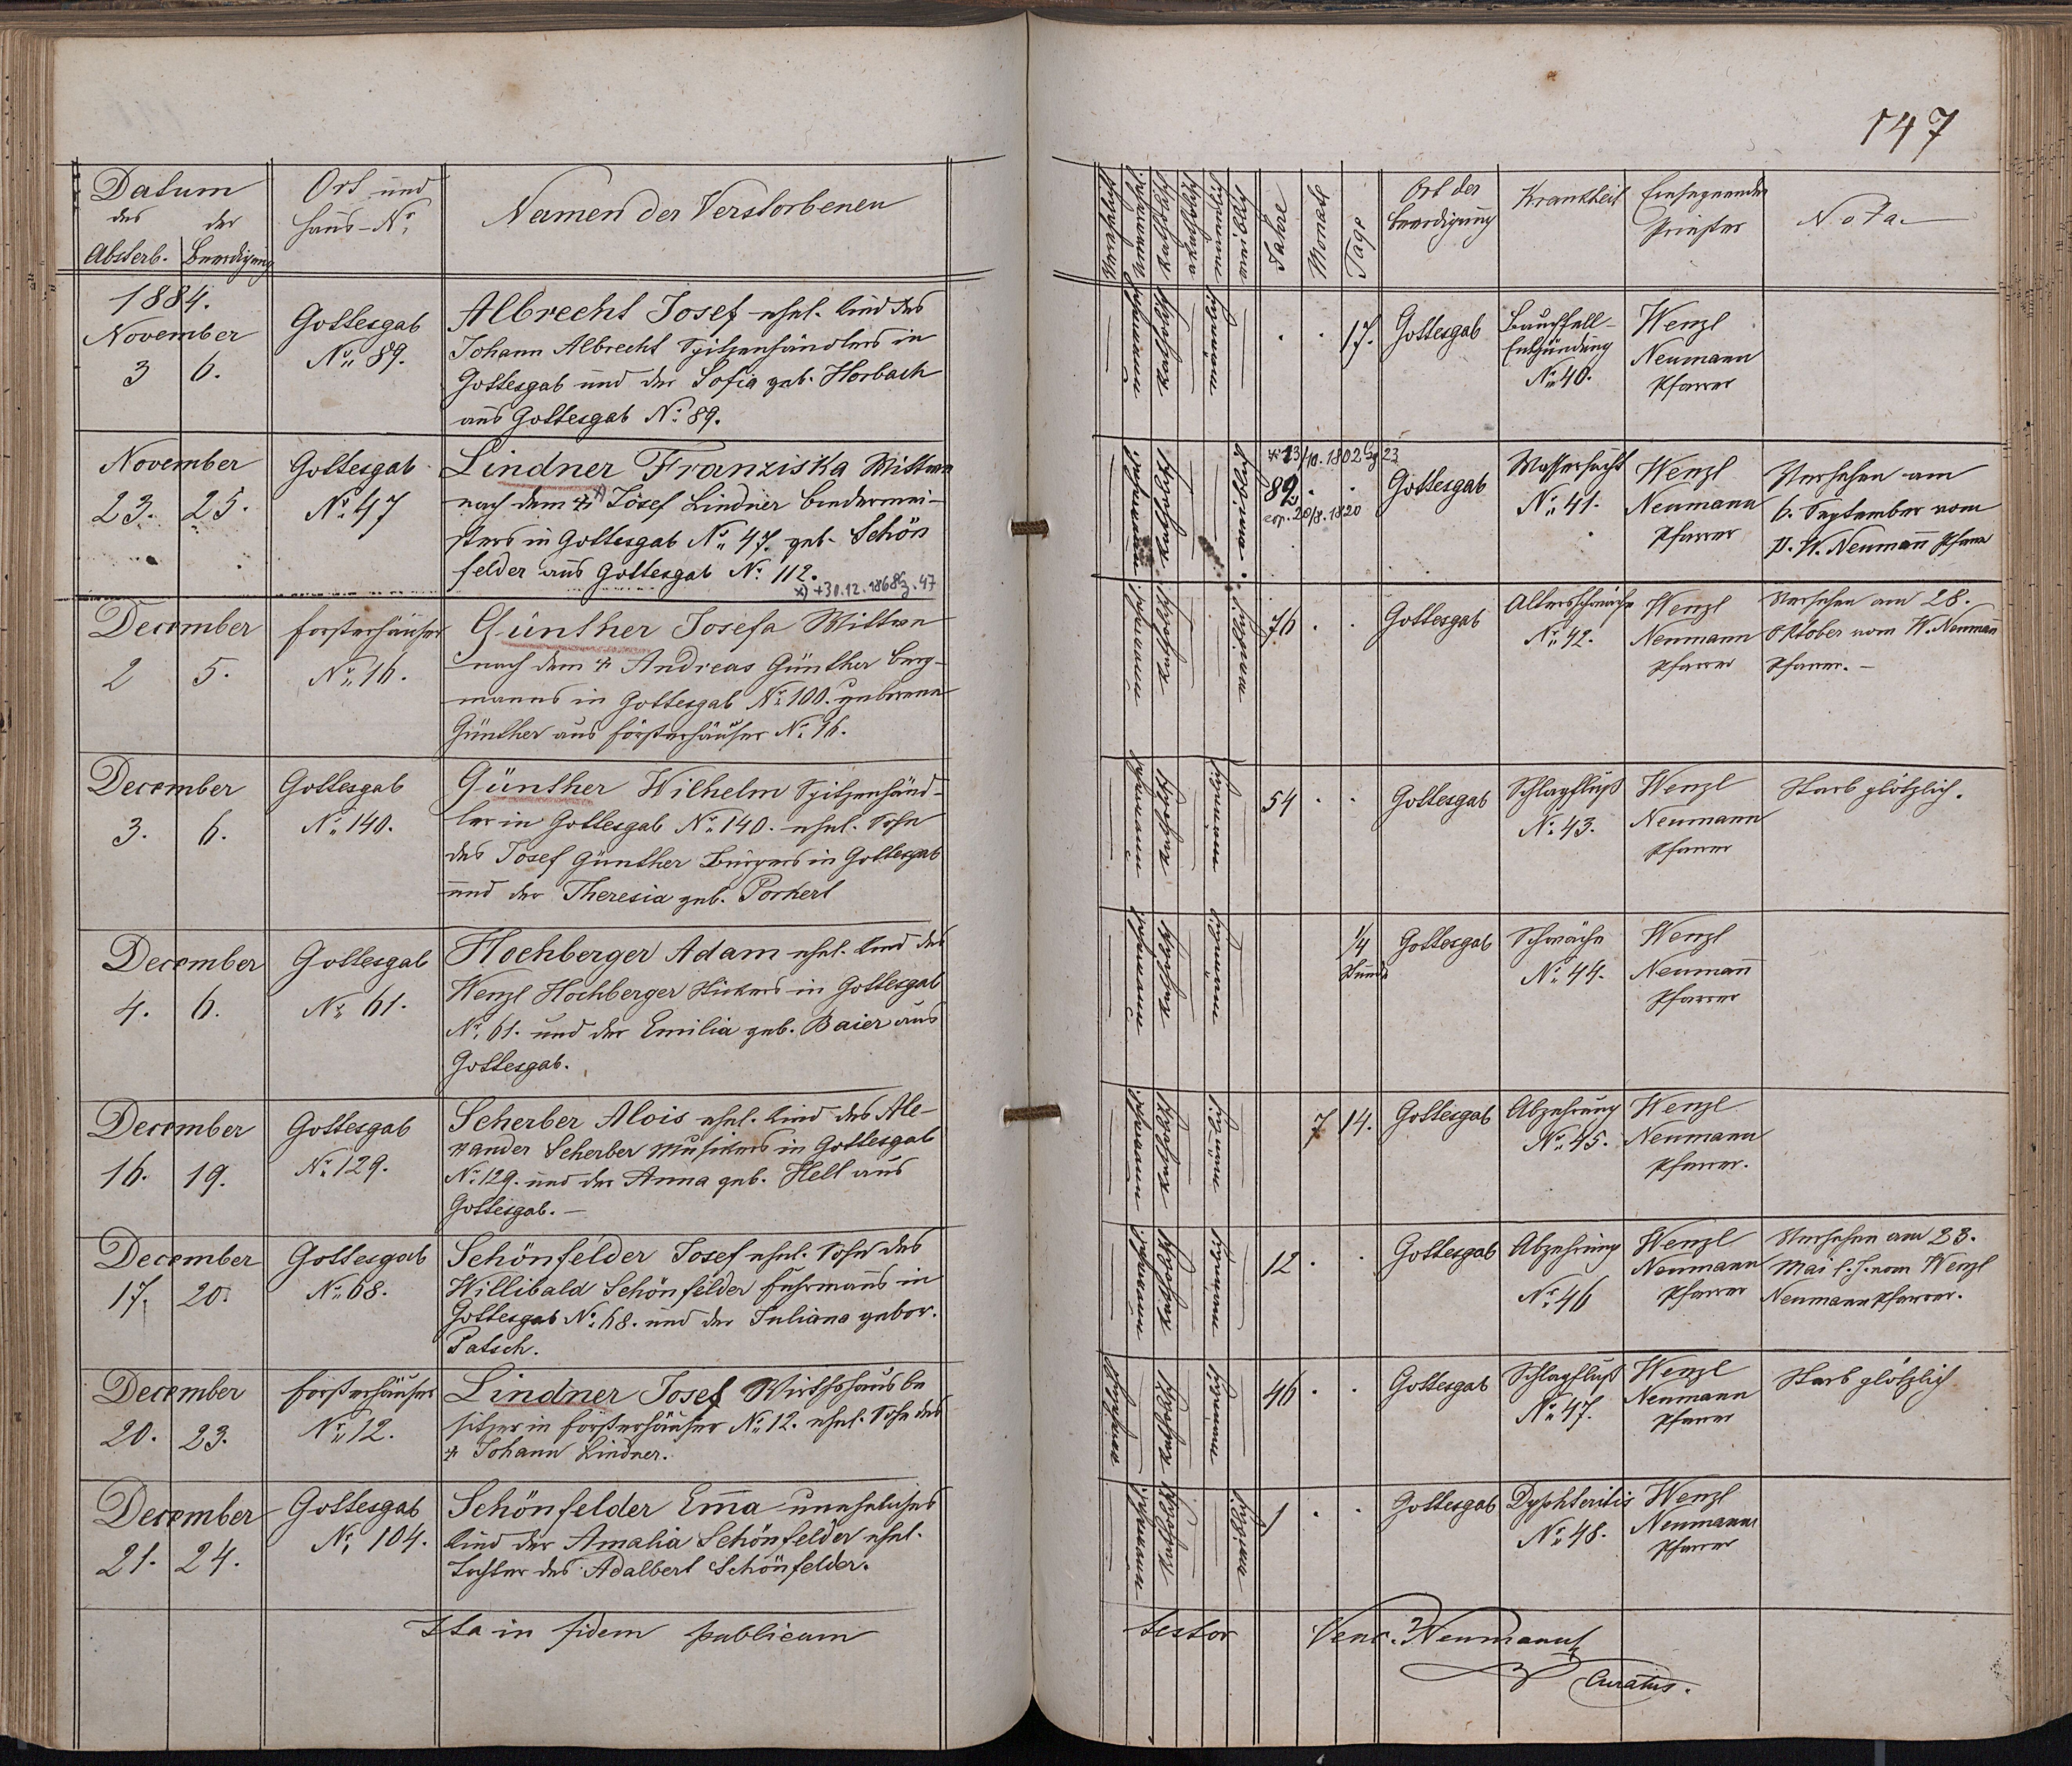 147
Datum
des der
Absterb. Beerdigung
Ort und
Haus-No.
Namen der Verstorbenen
Jahre
Monate
Tage
Ort der
Beerdigung
Krankheit
Einsegnender
Priester
Nota.
1884.
November
3 6.
Gottesgab
No. 89.
Albrecht Josef ehel. Kind des
Johann Albrecht Spitzenhändlers in
Gottesgab und der Sofia geb. Horbach
aus Gottesgab No. 89.
17.
Gottesgab
Bauchfell-
Entzündung
No. 40.
Wenzl
Neumann
Pfarrer
November
23. 25.
Gottesgab
No. 47
Lindner Franziska Wittwe
nach dem + x) Josef Lindner Bindermei-
sters in Gottesgab No. 47. geb. Schön
felder aus Gottesgab No. 112.
x) +30.12.1868 Gg. 47
* 23/10. 1802 Gg 23
82
cop. 20/8. 1820
Gottesgab
Wassersucht
No. 41.
Wenzl
Neumann
Pfarrer
Versehen am
6. September vom
P. W. Neumann Pfarrer
December
2 5.
Försterhäuser
No. 16.
Günther Josefa Wittwe
nach dem + Andreas Günther Berg-
manns in Gottesgab No. 100. geborene
Günther aus Försterhäuser No. 16.
76
Gottesgab
Altersschwäche
No. 42.
Wenzl
Neumann
Pfarrer
Versehen am 28.
Oktober vom W. Neumann
Pfarrer. –
December
3. 6.
Gottesgab
No. 140.
Günther Wilhelm Spitzenhänd-
ler in Gottesgab No. 140. ehel. Sohn
des Josef Günther Bürgers in Gottesgab
und der Theresia geb. Porkert
54
Gottesgab
Schlagfluß
No. 43.
Wenzl
Neumann
Pfarrer
Starb plötzlich.
December
4. 6.
Gottesgab
No. 61.
Hochberger Adam ehel. Kind des
Wenzl Hochberger Stickers in Gottesgab
No. 61. und der Emilia geb. Baier aus
Gottesgab.
1/4
Stunde
Gottesgab
Schwäche
No. 44.
Wenzl
Neumann
Pfarrer
December
16. 19.
Gottesgab
No. 129.
Scherber Alois ehel. Kind des Ale-
xander Scherber Musikers in Gottesgab
No. 129. und der Anna geb. Hell aus
Gottesgab. –
7 14.
Gottesgab
Abzehrung
No. 45.
Wenzl
Neumann
Pfarrer.
December
17. 20.
Gottesgab
No. 68.
Schönfelder Josef ehel. Sohn des
Willibald Schönfelder Fuhrmanns in
Gottesgab No. 68. und der Juliana gebor.
Patsch.
12
Gottesgab
Abzehrung
No. 46
Wenzl
Neumann
Pfarrer
Versehen am 23.
Mai l. J. vom Wenzl
Neumann Pfarrer.
December
20. 23.
Försterhäuser
No. 12.
Lindner Josef Wirthshausbe
sitzer in Försterhäuser No. 12. ehel. Sohn des
+ Johann Lindner.
46
Gottesgab
Schlagfluß
No. 47.
Wenzl
Neumann
Pfarrer
Starb plötzlich
December
21. 24.
Gottesgab
No. 104.
Schönfelder Emma uneheliches
Kind der Amalia Schönfelder ehel.
Tochter des Adalbert Schönfelder.
1
Gottesgab
Dyphteritis
No. 48.
Wenzl
Neumann
Pfarrer
Ita in fidem publicam
testor
Venc. Neumann
Curatus.